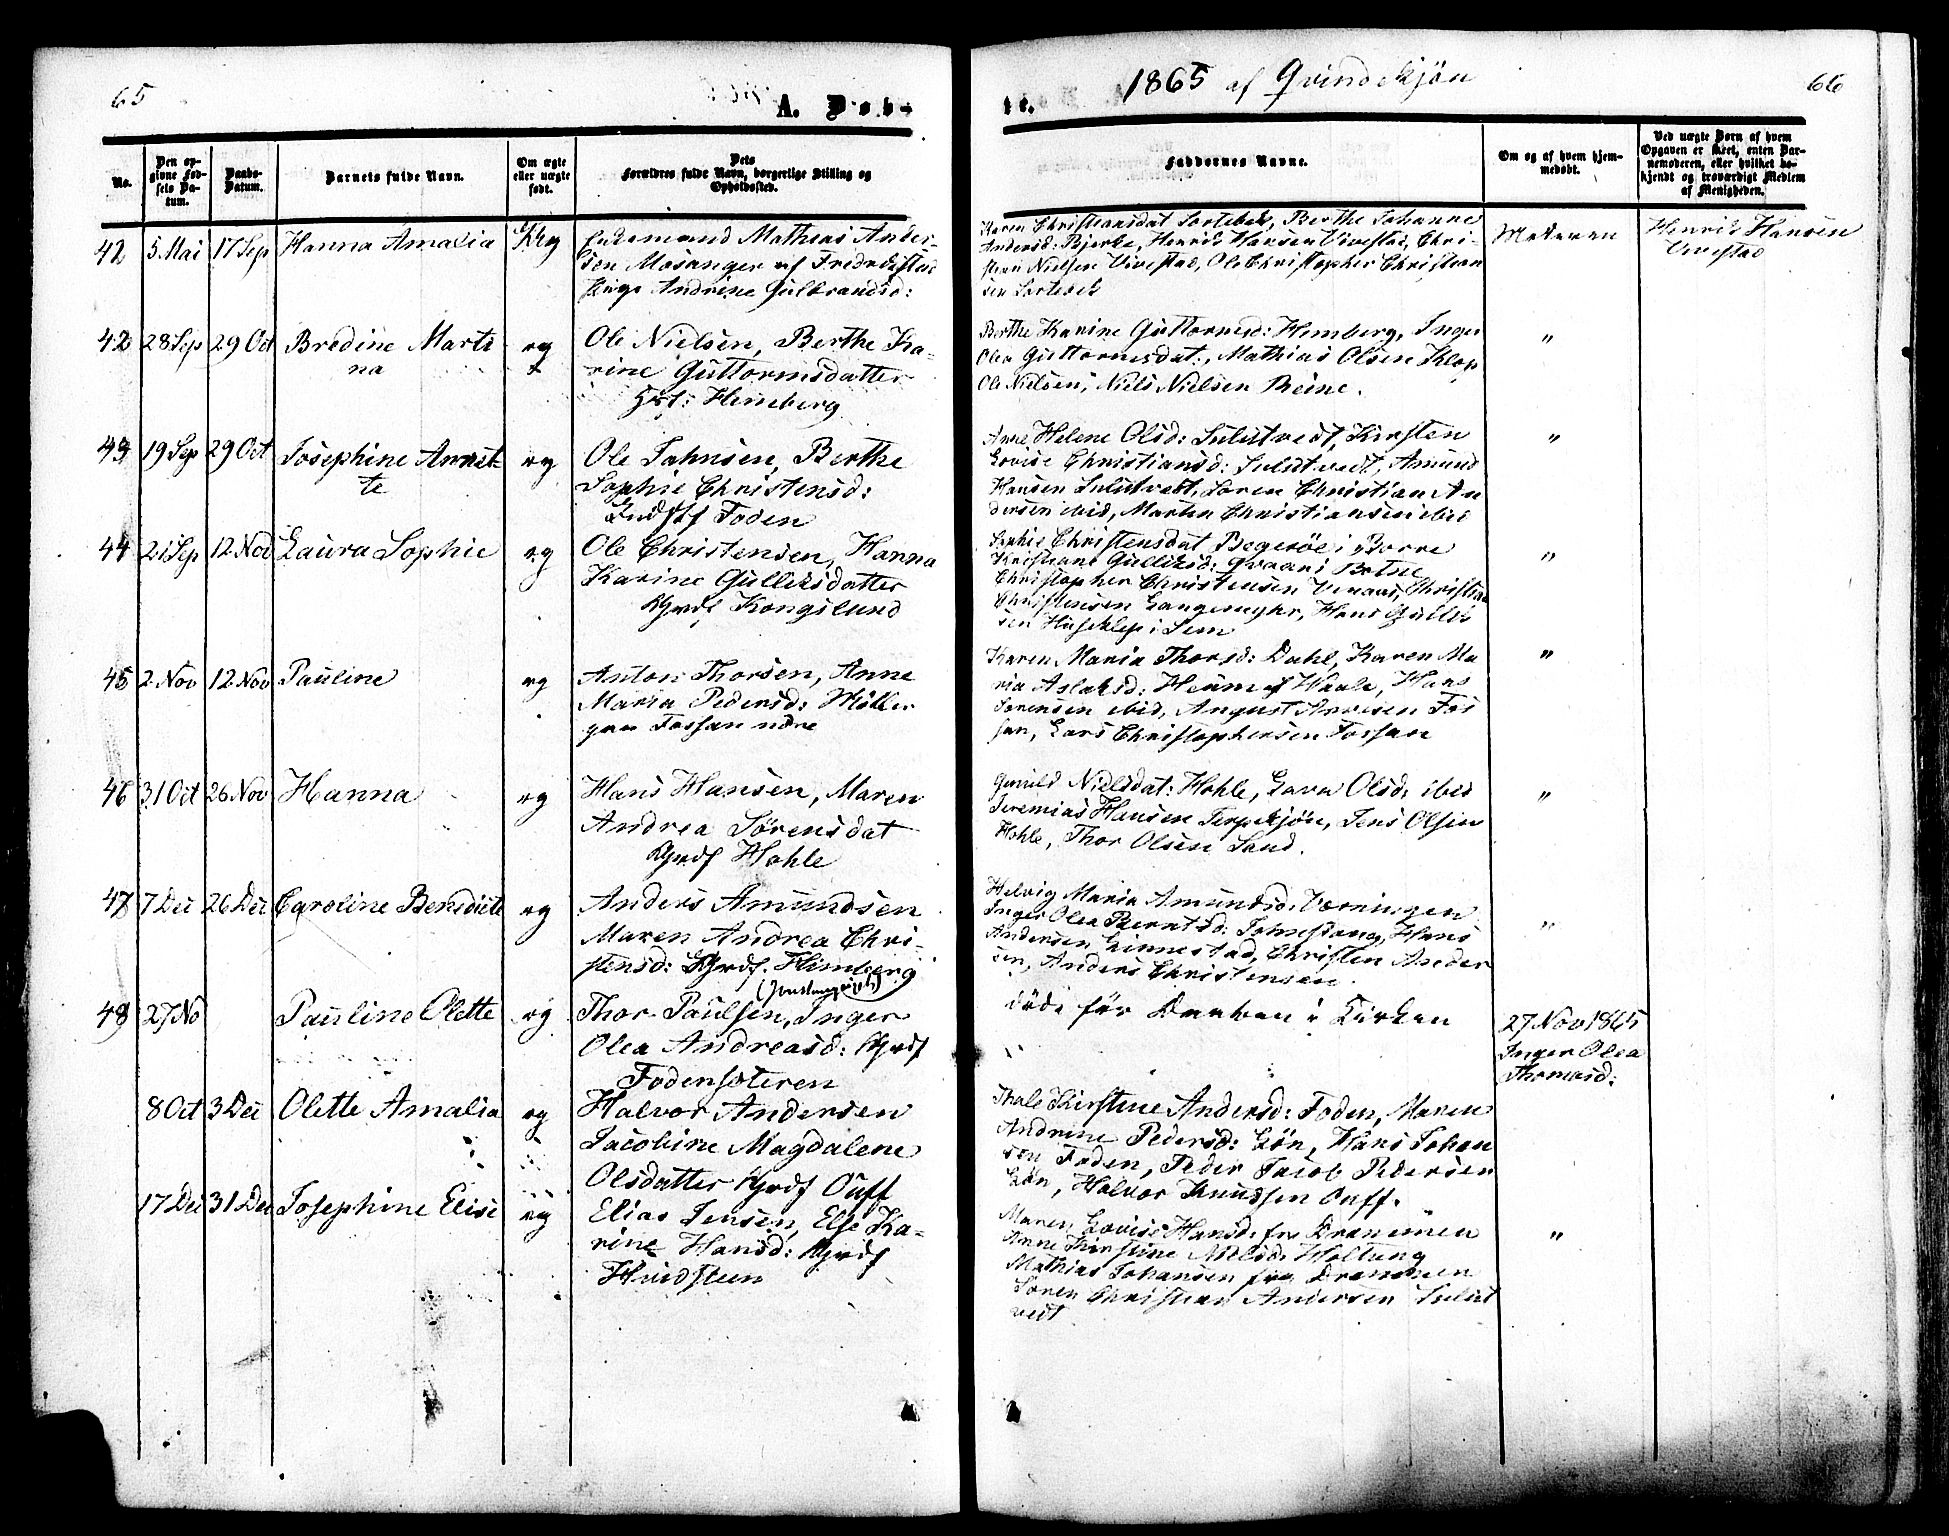 65
A. Døbte.
1865 af Qvindekjön
66
No.
Den opgivne Fødsels Datum.
Daabs-Datum.
Barnets fulde Navn.
Om ægte eller uægte født.
Dets Forældres fulde Navn, borgerlige Stilling og Opholdssted.
Faddernes Navne.
Om og af hvem hjemmedøbt.
Ved uægte Børn af hvem Opgaven er skeet, enten Barnemoderen, eller hvilket bekjendt og troværdigt Medlem af Menigheden.
42 5 Mai 17 Sep Hanna Amalia
Mathias Ander-
sen Mosanger af Fredrikstad
Andrine Gulbrandsd:
Karen Christiansdat Sortebek, Berthe Johanne
Andersd: Bjerke, Henrik Hansen Vivestad, Chri-
stian Nielsen Vivestad, Ole Christopher Christian
sen Sortebek
Moderen
Henrik Hansen
Vivestad
42 28 Sep 29 Oct Bredine Marti
na
eg
t
Ole Nielsen, Berthe Ka-
rine Guttormsdatter
Himberg
Berthe Karine Guttormsd: Himberg, Inger
Olea Guttormsdat:, Mathias Olsen Klop
Ole Nielsen, Niels Nielsen Reine.
"
43 19 Sep 29 Oct Josephine Annet-
te
eg
Ole Johnsen, Berthe
Sophie Christensd:
Indst Foden
Anne Helene Olsd: Sulutvedt, Kirsten
Lovise Christiansd: Sulutvedt, Amund
Hansen Sulutvedt, Søren Christian An
dersen ibid, Martin Christiansen ibid
"
44 21 Sep 12 Nov Laura Sophie
eg
Ole Christensen, Hanna
Karine Gulliksdatter
Grdf Kongslund
Sophie Christensdat Begeröe i Borre
Kristiane Gulliksd: i Botne
Christopher Christensen Christian
Christensen Langemyhr, Hans Gullik
sen Huseklep i Sem
"
45 2 Nov 12 Nov Pauline
eg
Anton Thorsen, Anne
Maria Pedersd: Möller
Fossan ndre
Karen Maria Thorsd: Dahl, Karen Ma
ria Aslaksd: Hans
Sörensen ibid, August Fos
san, Lars Christophersen Fossan
"
46 31 Oct 26 Nov Hanna
eg
Hans Hansen, Maren
Andrea Sörensdat
Grdf Hohle
Gunild Nielsdat: Hohle, Olsd: ibid
Jeremias Hansen Terpekjön, Jens Olsen
Hohle, Thor Olsen Sand.
"
47 7 Dec 26 Dec Caroline Benedicte
eg
Anders Amundsen
Maren Andrea Chri-
stensd: Grdf. Himberg
Helvig Maria Amundsd.
Inger Olea Berntsd: Hans
Andersen Linnestad, Christen Ander
sen, Anders Christensen.
"
48 27 No Pauline Olette
eg
Thor Paulsen, Inger
Olea Andreasd: Grdf
Fodensæteren
döde för Daaben i Kirken
27 Nov 1865
Inger Olea
Thomasd:
8 Oct 3 Dec Olette Amalia
eg
Halvor Andersen
Jacobine Magdalene
Olsdatter Grdf Ouff
Thale Kirstine Andersd: Foden, Maren
Andrine Pedersd: Lön, Hans Johan
sen Foden, Peder Jacob Pedersen
Lön, Halvor Knudsen Ouff.
17 Dec 31 Dec Josephine Elise
eg
Elias Jensen, Else Ka-
rine Hansd: Grdf
Hundsteen
Maren Lovise Hansd: fra Drammen
Anne Kirstine Nielsd: Holtung
Mathias Johansen fra Drammen
Sören Christian Andersen Sulut
vedt
"